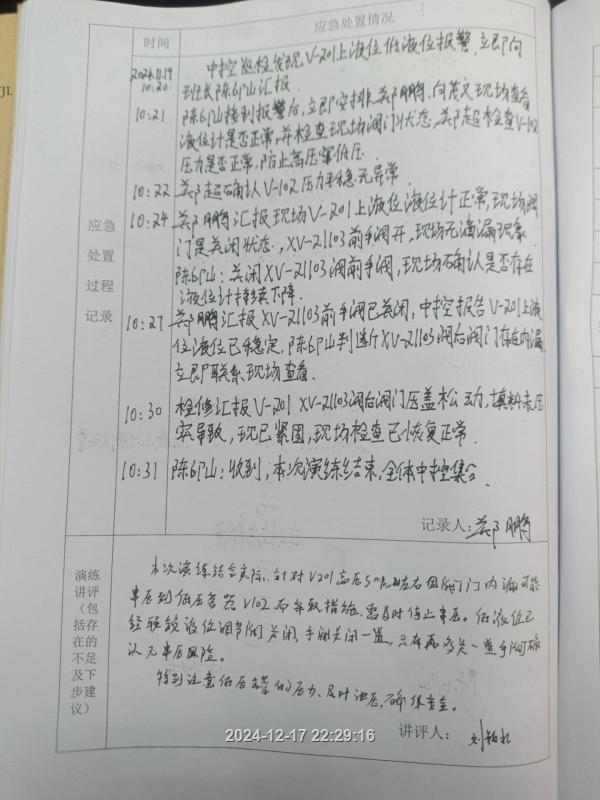 应急处置情况
时间
2024.11.19 中控巡检发现V-201上液位低液位报警,立即向
10:20 班长陈6山汇报.
10:21 陈6山接到报警后,立即安排郑鹏、向茂文现场查看
液位计是否正常,并检查现场阀门状态,郑超检查V-102
压力是否正常,防止高压窜低压.
10:22 郑超确认V-102压力平稳无异常.
10:24 郑鹏汇报现场V-201上液位液位计正常,现场阀
门是关闭状态,XV-21103前手阀开,现场无滴漏现象.
陈6山:关闭XV-21103阀前手阀,现场确认是否存在
液位计持续下降.
10:27 郑鹏汇报XV-21103前手阀已关闭,中控报告V-201上液
位液位已稳定,陈6山判断XV-21103阀后阀门存在内漏
立即联系现场查看.
10:30 检修汇报V-201 XV-21103阀后阀门压盖松动,填料未压
实导致,现已紧固,现场检查已恢复正常.
10:31 陈6山:收到,本次演练结束,全体中控集合.
应急
处置
过程
记录
记录人:郑鹏
演练
讲评
(包
括存
在的
不足
及下
步建
议)
本次演练结合实际,针对V201高压 左右 阀门内漏可能
串压到低压容器V102而采取措施,需及时停止串压。低液位已
经联锁液位调节阀关闭,手阀关闭一道,只有再 关一道手阀确
认无串压风险。
特别注意低压罐的压力、及时泄压,确保安全。
讲评人:刘
2024-12-17 22:29:16